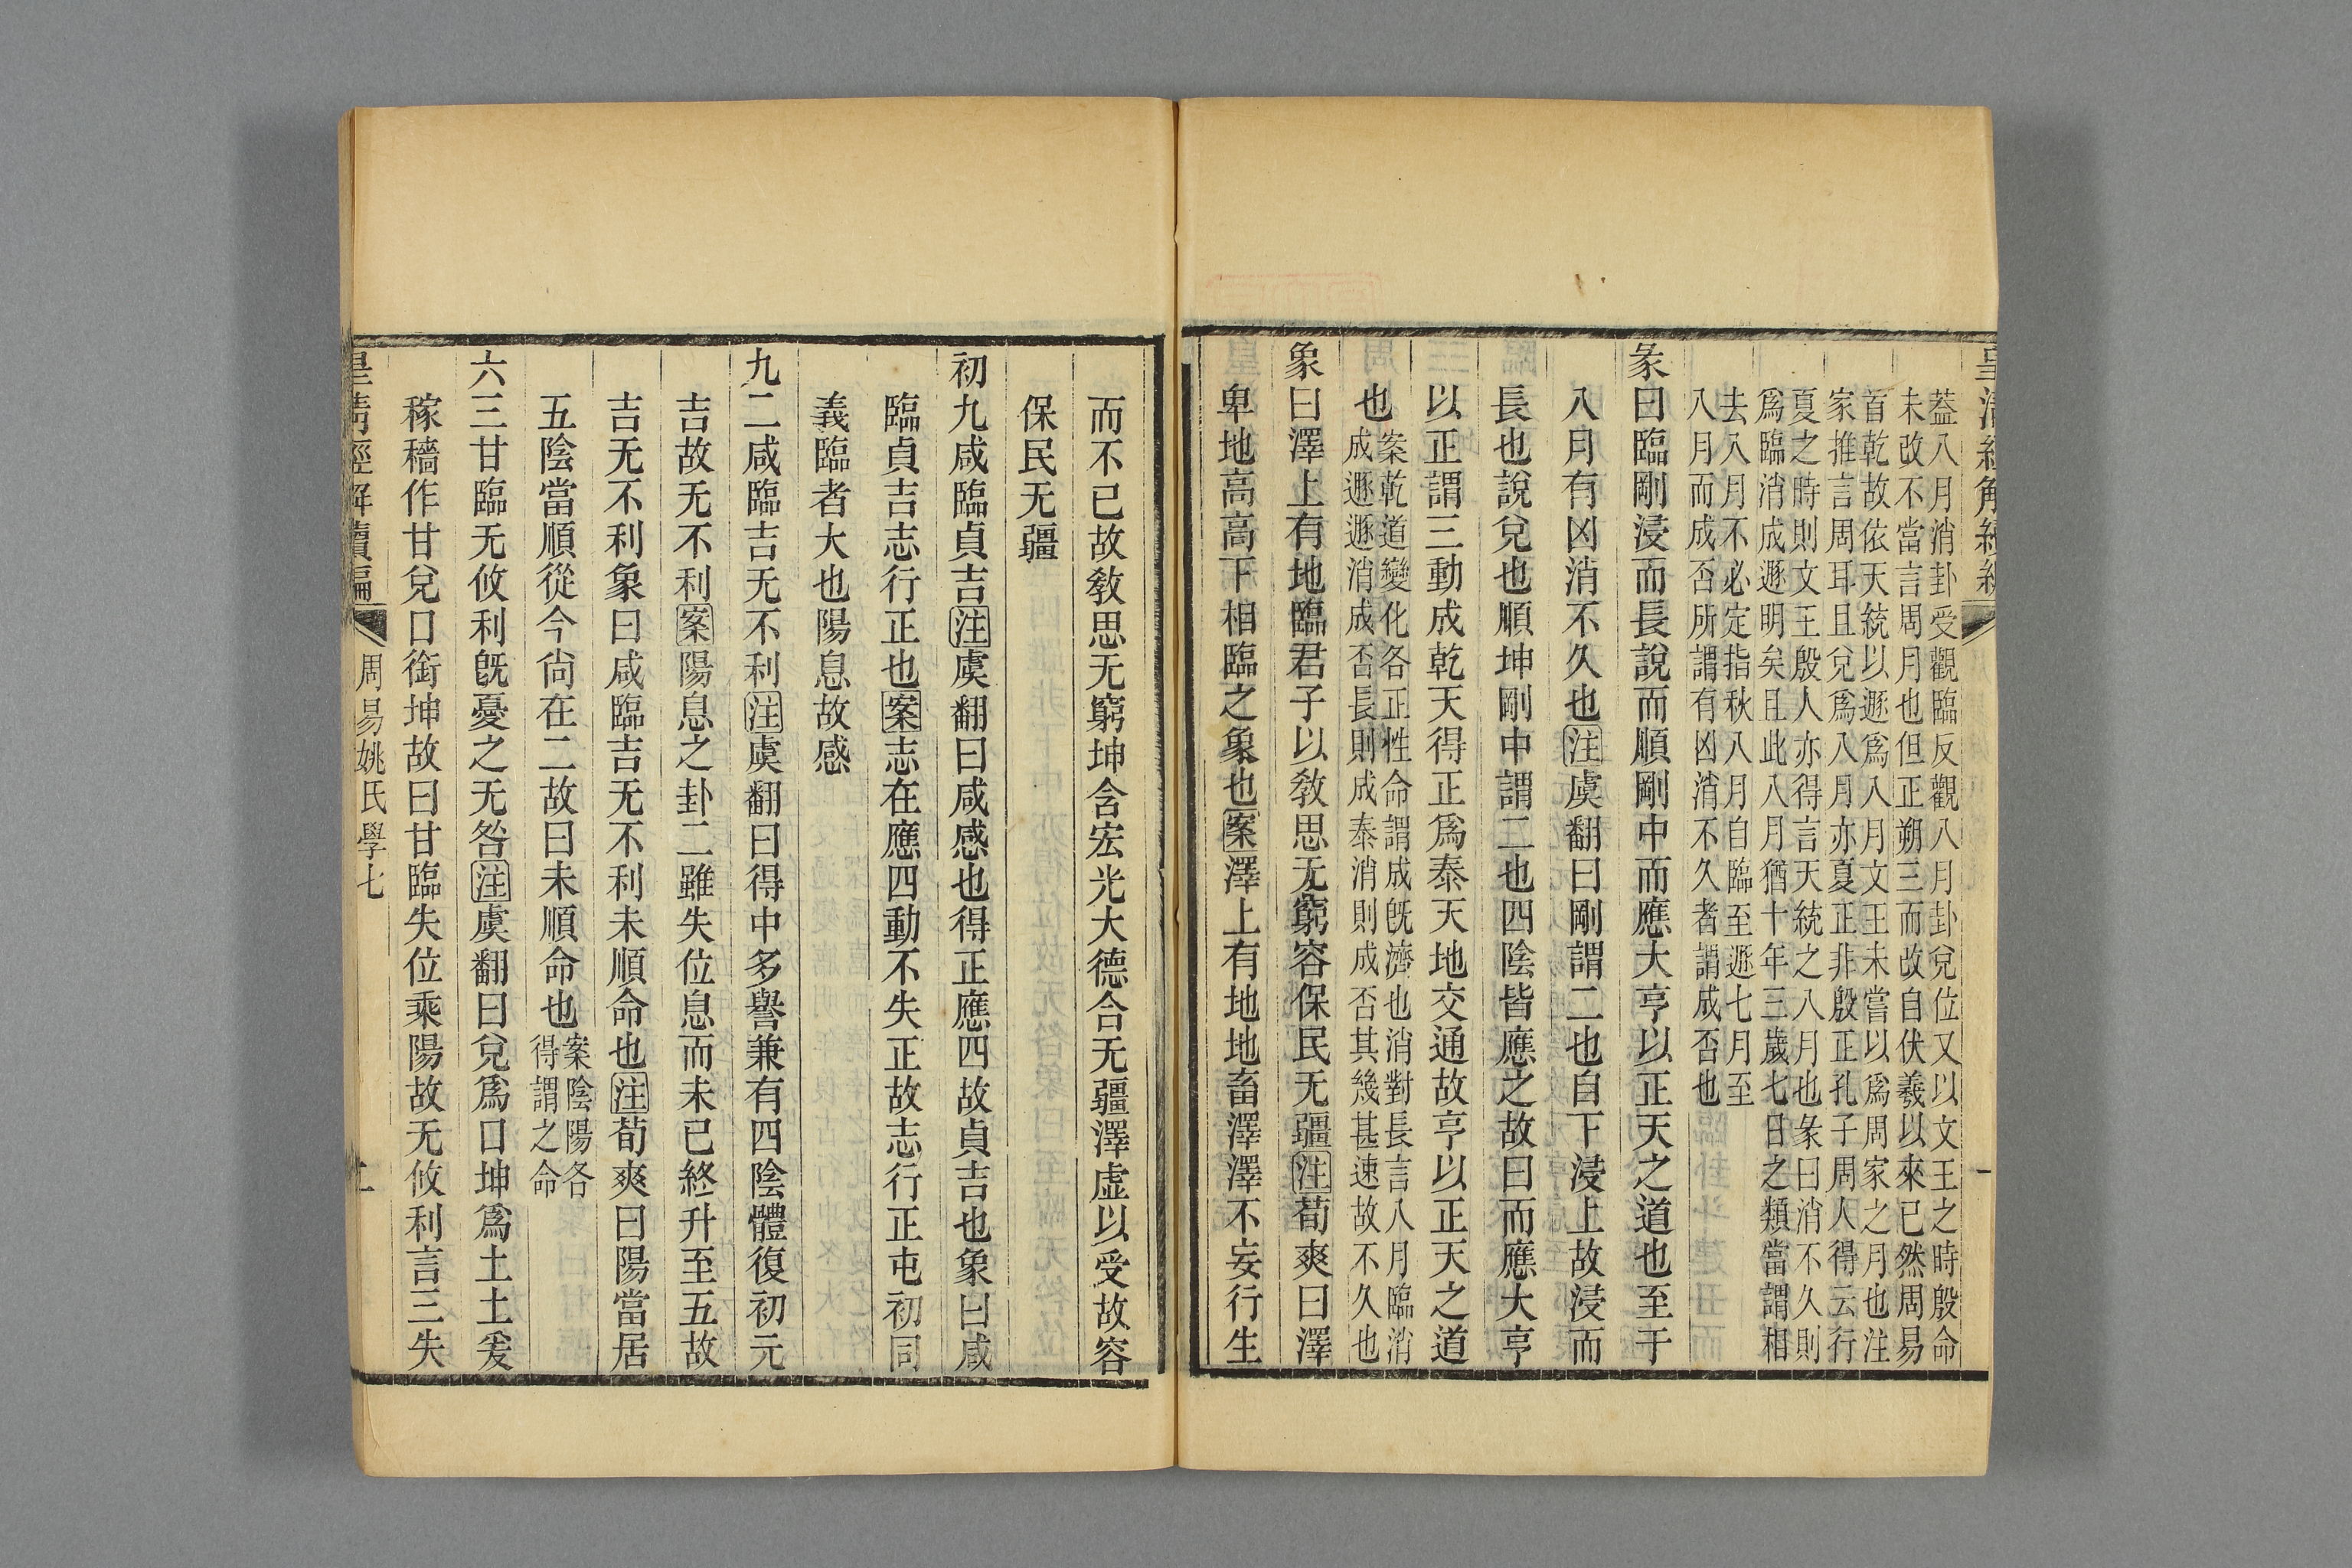 皇清經解續編
蓋八月消卦受觀臨反觀八月卦兌位又以文王之時殷命
未改不當言周月也但正朔三而改自伏羲以來已然周易
首乾故依天統以遯爲八月文王未嘗以爲周家之月也注
家推言周耳且兌爲八月亦夏正非殷正孔子周人得云行
夏之時則文王殷人亦得言天統之八月也彖曰消不久則
爲臨消成遯明矣且此八月猶十年三歲七日之類當謂相
去八月不必定指秋八月自臨至遯七月至
八月而成否所謂有凶消不久者謂成否也
彖曰臨剛浸而長說而順剛中而應大亨以正天之道也至于
八月有凶消不久也注虞翻曰剛謂二也自下浸上故浸而
長也說兌也順坤剛中謂二也四陰皆應之故曰而應大亨
以正謂三動成乾天得正爲泰天地交通故亨以正天之道
也
案乾道變化各正性命謂成旣濟也消對長言八月臨消
成遯遯消成否長則成泰消則成否其幾甚速故不久也
象曰澤上有地臨君子以敎思无窮容保民无疆注荀爽曰澤
卑地高高下相臨之象也案澤上有地地畜澤澤不妄行生
而不已故敎思无窮坤含宏光大德合无疆澤虛以受故容
保民无疆
初九咸臨貞吉注虞翻曰咸感也得正應四故貞吉也象曰咸
臨貞吉志行正也案志在應四動不失正故志行正屯初同
義臨者大也陽息故感
九二咸臨吉无不利注虞翻曰得中多譽兼有四陰體復初元
吉故无不利案陽息之卦二雖失位息而未已終升至五故
吉无不利象曰咸臨吉无不利未順命也注荀爽曰陽當居
五陰當順從今尙在二故曰未順命也
案陰陽各
得謂之命
六三甘臨无攸利旣憂之无咎注虞翻曰兌爲口坤爲土土爰
稼穡作甘兌口銜坤故曰甘臨失位乘陽故无攸利言三失
皇清經解續編
周易姚氏學七